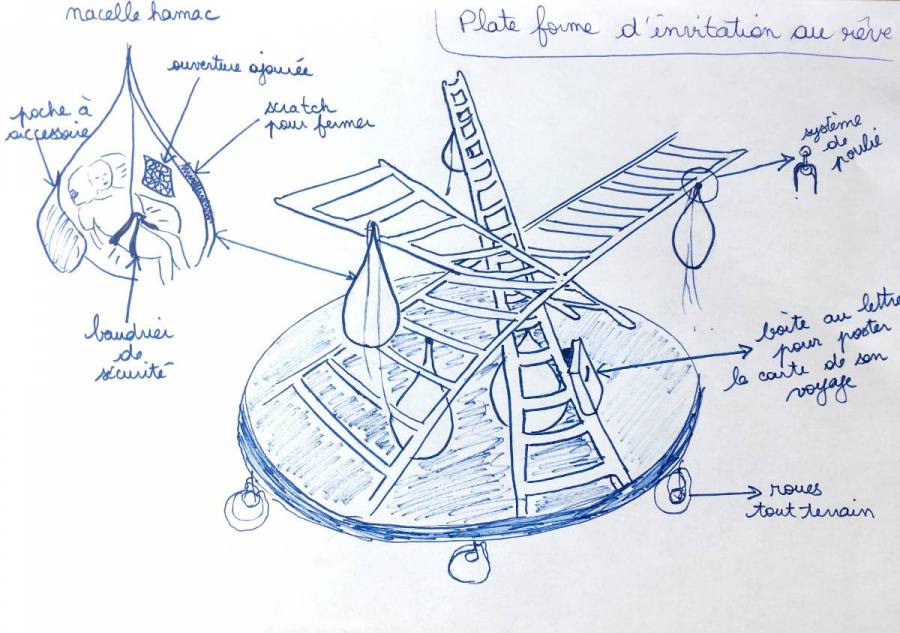 nacelle hamac
Plate forme d'invitation au rêve
ouverture ajourée
poche à
accessoire
scratch
pour fermer
système
de
poulie
baudrier
de
sécurité
boîte au lettre
pour poster
la carte de son
voyage
roues
tout terrain